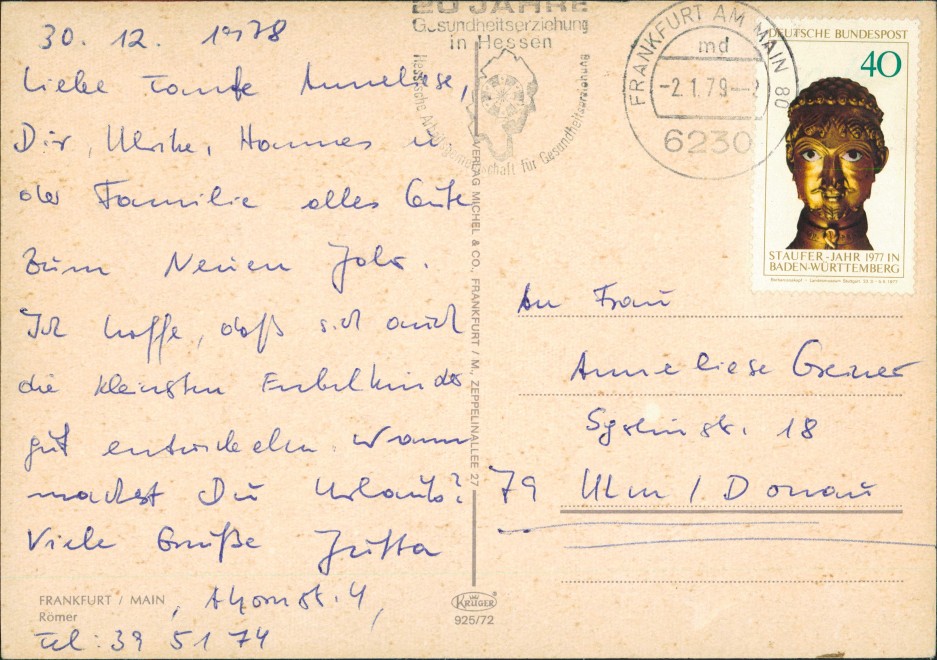 30. 12. 1978
Liebe Tante Anneliese,
Dir, Ulrike, Hannes u
der Familie alles Gute
zum Neuen Jahr.
Ich hoffe, daß sich auch
die kleinsten Enkelkinder
gut entwickeln. Wann
machst Du Urlaub?
Viele Grüße Jutta
FRANKFURT / MAIN
Römer
, Ahornstr. 4,
Tel: 39 51 74
20 JAHRE
Gesundheitserziehung
in Hessen
Hessische Arbeitsgemeinschaft für Gesundheitserziehung
FRANKFURT AM MAIN 80
md
-2.1.79--2
6230
DEUTSCHE BUNDESPOST
40
STAUFER-JAHR 1977 IN
BADEN-WÜRTTEMBERG
VERLAG MICHEL & CO., FRANKFURT / M., ZEPPELINALLEE 27
An Frau
Anneliese
Syrlinstr. 18
79 Ulm / Donau
KRÜGER
925/72